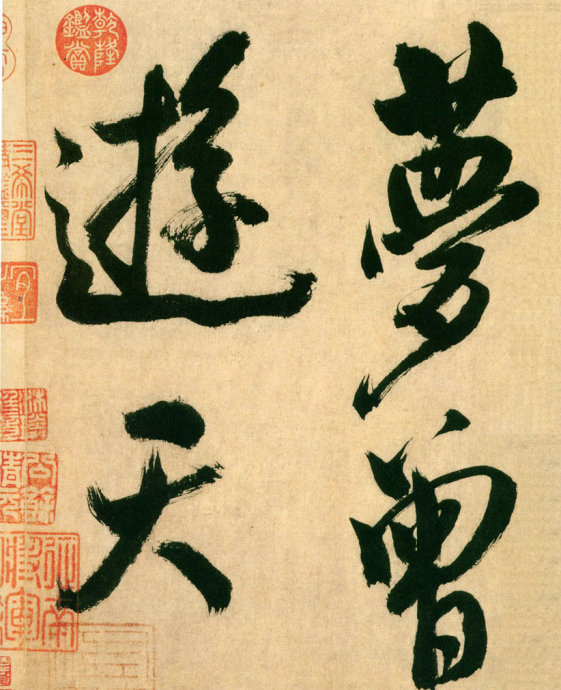 夢曾
遊天
乾隆
鑑賞
三希堂